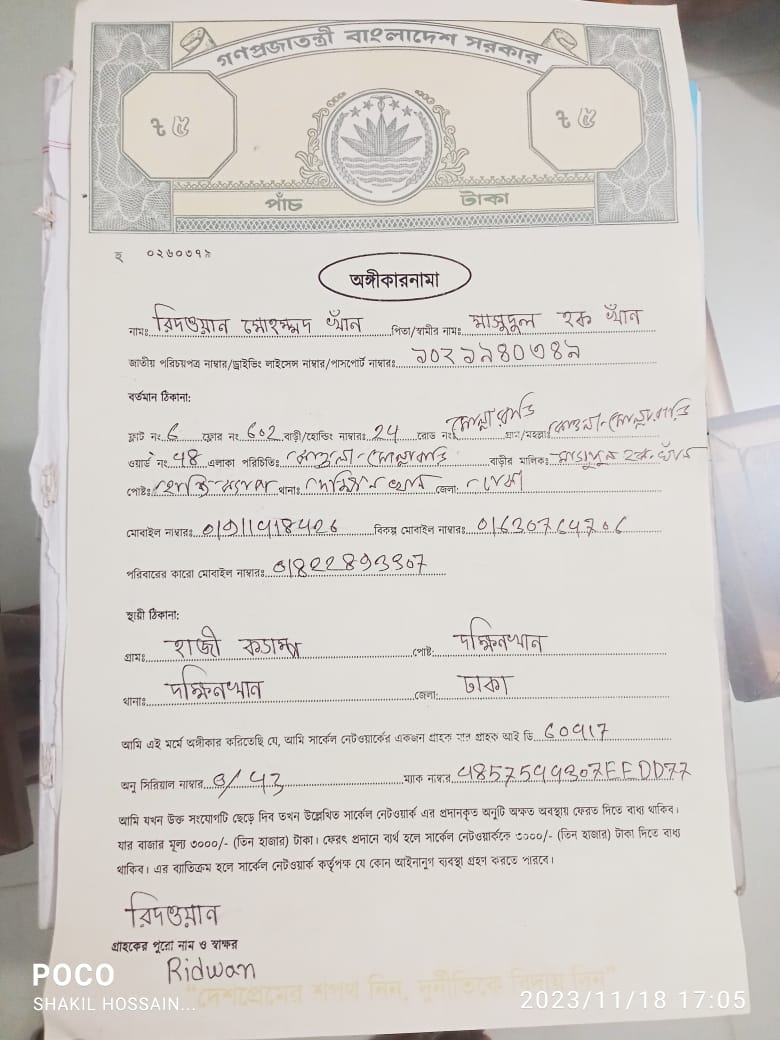 গণপ্রজাতন্ত্রী বাংলাদেশ সরকার
৳ ৫ ৳ ৫
পাঁচ টাকা
হ ০২৬০৩৭৯
অঙ্গীকারনামা
নামঃ রিদওয়ান মোহম্মদ খাঁন পিতা/স্বামীর নামঃ মাসুদুল হক খাঁন
জাতীয় পরিচয়পত্র নাম্বার/ড্রাইভিং লাইসেন্স নাম্বার/পাসপোর্ট নাম্বারঃ ১০২১৯৪০৩৪৯
বর্তমান ঠিকানা:
ফ্লাট নং 6 ফ্লোর নং 602 বাড়ী/হোল্ডিং নাম্বারঃ 24 রোড নং মোল্লাবাড়ি গ্রাম/মহল্লা
ওয়ার্ড নং 48 এলাকা পরিচিতি বাড়ীর মালিকঃ মাসুদুল হক খাঁন
পোষ্টঃ থানাঃ জেলা:
মোবাইল নাম্বারঃ বিকল্প মোবাইল নাম্বারঃ
পরিবারের কারো মোবাইল নাম্বারঃ
স্থায়ী ঠিকানা:
গ্রামঃ হাজী পোষ্ট: দক্ষিনখান
থানাঃ দক্ষিনখান জেলা: ঢাকা
আমি এই মর্মে অঙ্গীকার করিতেছি যে, আমি সার্কেল নেটওয়ার্কের একজন গ্রাহক যার গ্রাহক আই ডি
অনু সিরিয়াল নাম্বার ম্যাক নাম্বার
আমি যখন উক্ত সংযোগটি ছেড়ে দিব তখন উল্লেখিত সার্কেল নেটওয়ার্ক এর প্রদানকৃত অনুটি অক্ষত অবস্থায় ফেরত দিতে বাধ্য থাকিব।
যার বাজার মূল্য ৩০০০/- (তিন হাজার) টাকা। ফেরৎ প্রদানে ব্যর্থ হলে সার্কেল নেটওয়ার্ককে ৩০০০/- (তিন হাজার) টাকা দিতে বাধ্য
থাকিব। এর ব্যতিক্রম হলে সার্কেল নেটওয়ার্ক কর্তৃপক্ষ যে কোন আইনানুগ ব্যবস্থা গ্রহণ করতে পারবে।
রিদওয়ান
গ্রাহকের পুরো নাম ও স্বাক্ষর
Ridwan
"দেশপ্রেমের শপথ নিন, দুর্নীতিকে বিদায় দিন"
POCO
SHAKIL HOSSAIN...
2023/11/18 17:05